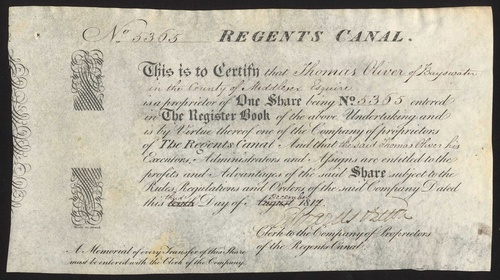 No. 5365 REGENTS CANAL.
This is to Certify that Thomas Oliver of Bayswater
in the County of Middlesex Esquire
is a proprietor of One Share being No. 5365 entered
in The Register Book of the above Undertaking and
is by Virtue thereof one of the Company of proprietors
of The Regents Canal. And that the said Thomas Oliver his
Executors, Administrators and Assigns are entitled to the
profits and Advantages of the said Share subject to the
Rules, Regulations and Orders of the said Company Dated
this Day of December August 1817.
Clerk to the Company of Proprietors
of the Regents Canal.
A Memorial of every Transfer of this Share
must be entered with the Clerk of the Company.